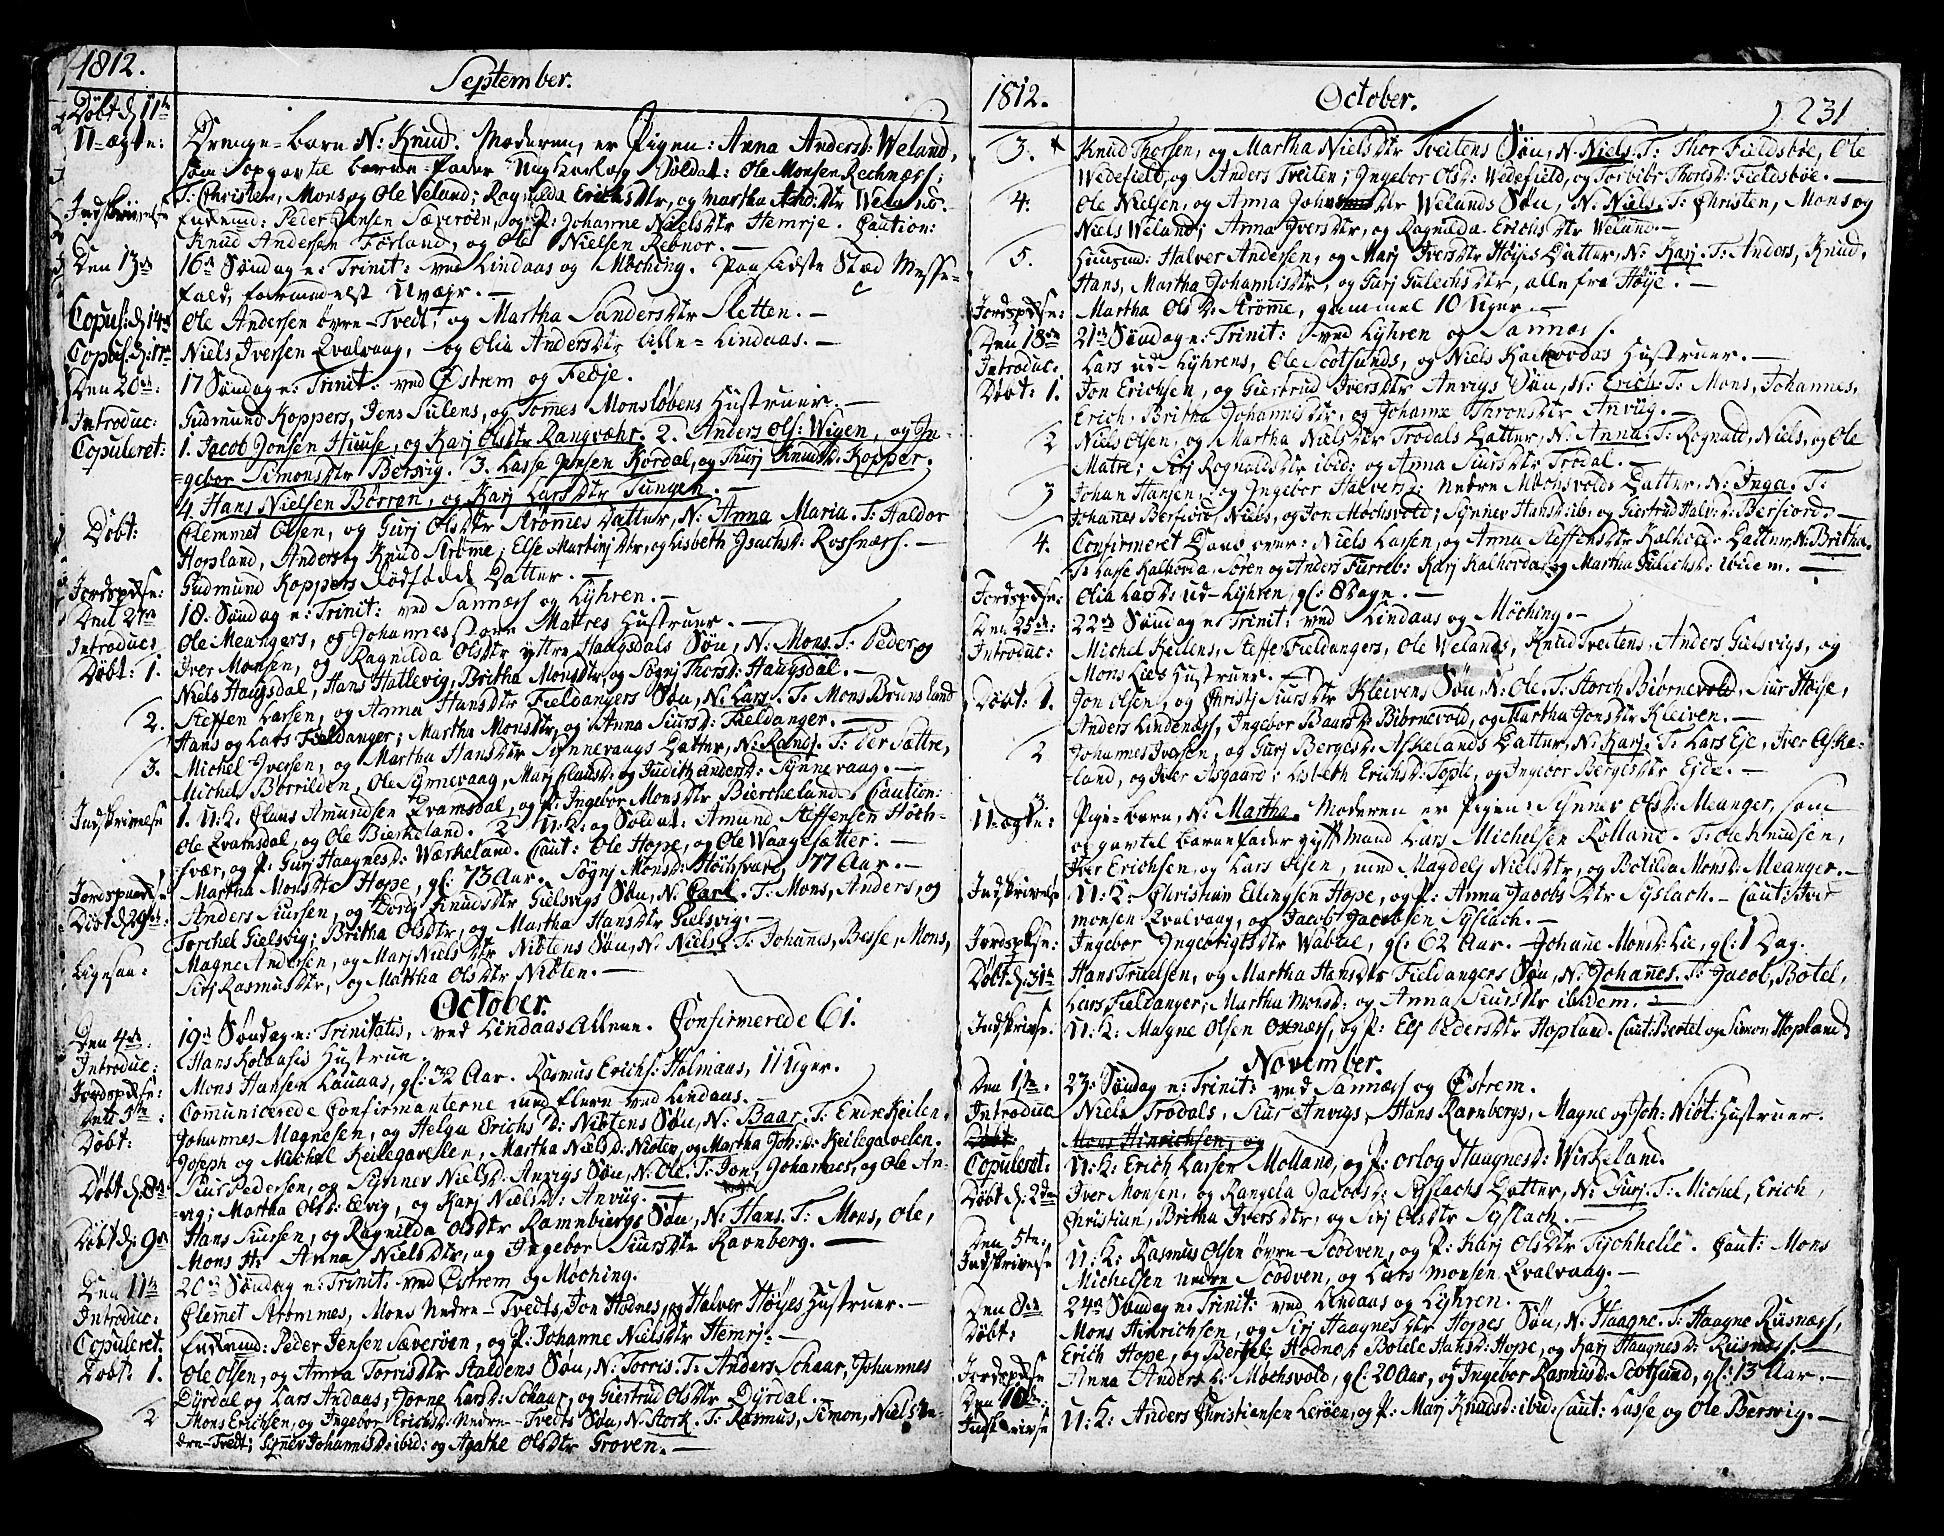 1812.
September.
Döbt d: 11te
U-ægte: Drenge-barn N: Knud. Moderen, er Pigen: Anna Andersd: Weland,
som opgav til barne-fader Ungkarl og Soldat: Ole Monsen Rechnæss;
T: Christen, Mons og Ole Veland; Ragnilda Erichsdtr, og Martha And:dtr Weland.
Indskrivelse Enkemd: Peder Jensen Sæveröen, og P: Johanne Nielsdtr Hemrje. Caution:
Knud Andersen Forland, og Ole Nielsen Rebnor. —
Den 13de 16de Söndag e: Trinit: ved Lindaas og Möching. Paa sidste Stæd Messe-
fald, formedelst Uvejr. —
Copul: d: 14de Ole Andersen övre-Tvedt, og Martha Sandersdtr Sletten. —
Copul: d: 17de Niels Iversen Qvalvaag, og Olia Andersdtr lille-Lindaas. —
Den 20de: 17 Söndag e: Trinit: ved Östrem og Fedje.
Introduc: Gudmund Koppers, Jens Sulens, og Tomes Monslöbens Hustruer. —
Copuleret: 1. Jacob Jonsen Huuse, og Karj Olsdtr Rangvahr. 2. Anders Ols: Wigen, og In-
=gebor Simonsdtr Bersvig. 3. Lasse Jensen Kordal, og Thurj Knudsd: Kopper.
4. Hans Nielsen Börron, og Karj Larsdtr Tungen. —
Döbt: Clemmet Olsen, og Gurj Olsdtr Strömes Datter, N: Anna Maria. T: Haldor
Hopland, Anders og Knud Ströme; Else Martinj dtr, og Lisbeth Isachsd: Rossnæss. —
Jordspdse: Gudmund Koppers dödfödde Datter. —
Den 27de 18. Söndag e: Trinit: ved Sannæss og Lyhren. —
Introduc: Ole Meangers, og Johannes store Matres Hustruer. —
Döbt: 1. Iver Monsen, og Ragnilda Olsdtr yttre Haugsdals Sön, N: Mons. T: Peder og
Niels Haugsdal, Hans Hattevig, Britha Monsdtr og Sögnj Thorsd: Haugsdal. —
2. Steffen Larsen, og Anna Hansdtr Fieldangers Sön, N: Lars. T: Mons Brunsland
Hans og Lars Fieldanger; Martha Monsdtr, og Anna Siursd: Fieldanger. —
3. Michel Iversen, og Martha Hansdtr Synnevaags Datter, N: Randj. T: Per Sættre,
Michel Borrilden, Ole Synnevaag, Marj Clausd: og Judith Andersd: Synnevaag. —
Indskrivelse 1. U:K: Claus Amundsen Qvamsdal, og P: Ingebor Monsdtr Biercheland. Caution:
Ole Qvamsdal, og Ole Bierkeland. 2 U:K: og Soldat: Amund Steffensen Höch-
fvær, og P: Gurj Haagnesd: Wærkeland. Caut: Ole Hope, og Ole Waagesætter. —
Jordspaadse Martha Monsdtr Hope, gl: 73 Aar. Sögnj Monsd: Höchsvard, 77 Aar. —
Döbt d: 29de: Anders Siursen, og Dordj Knudsdtr Gielsvigs Sön, N: Carl. T: Mons, Anders, og
Torchel Gielsvig; Britha Olsdtr, og Martha Hansdtr Gielsvig. —
Ligesaa: Magne Andersen, og Marj Nielsdtr Niötens Sön, N: Niels. T: Johannes, Besse, Mons,
Sirj Rasmusdtr, og Martha Olsdtr Niöten. —
October.
Den 4de: 19de Söndag e: Trinitatis, ved Lindaas Allene. Confirmerede 61.
Introduc: Hans Kolaasis Hustrue.
Jordspdse: Mons Hansen Lauaas, gl: 32 Aar. Rasmus Erichs: Holmaas, 11 Uger.
Den 5te: Comunicerede Confirmanterne med flere ved Lindaas.
Döbt: Johannes Magnesen, og Helga Erichs D: Niötens Sön, N: Baar. T: Endre Keilen,
Joseph og Michel Keilegavelen, Martha Nielsd: Niöten, og Martha Joh:d: Keilegavelen.
Döbt d: 8de Siur Pedersen, og Synnev Nielsd: Anvigs Sön, N: Ole. T: Jon, Johannes, og Ole An-
vig; Martha Olsd: Eevig, og Karj Nielsd: Anviig. —
Döbt d: 9de Hans Siursen, og Ragnilda Olsdtr Ramnbiergs Sön, N: Hans. T: Mons, Ole,
Mons H: Anna Nielsdtr, og Ingebor Siursdtr Ravnberg. —
Den 11te 20de Söndag e: Trinit: ved Östrem og Möching.
Introduc: Clemet Strömmes, Mons Nedre-Tvedts, Jon Hodnes, og Halver Höyes Hustruer. —
Copuleret. Enkemd: Peder Jensen Sæveröen, og P: Johanne Nielsdtr Hemrj. —
Döbt: 1. Ole Olsen, og Anna Torrisdtr Staldens Sön, N: Torris. T: Anders Schaar, Johannes
Dyrdal og Lars Andaas; Jorne Larsd: Schaar, og Giertrud Olsdtr Dyrdal. —
2 Mons Erichsen, og Ingebor Erichsd: Nedre-Tvedts Sön, N: Stork. T: Rasmus, Simon, Niels Ne-
dre-Tvedt; Synnev Johannisd: ibid: og Agathe Olsdtr Groven. —
1812. October. 231
3. Knud Thorsen, og Martha Nielsdtr Tveitens Sön, N: Niels. T: Thor Fieldsböe, Ole
Wedefield, og Anders Tveiten; Ingebor Olsd: Wedefield, og Torbibr Thorsd: Fieldsböe. —
4. Ole Nielsen, og Anna Johnsdtr Welands Sön, N: Niels. T: Christen, Mons og
Niels Weland; Anna Iversdtr, og Ragnilda Erichsdtr Weland. —
5. Huusmd: Halver Andersen, og Marj Iversdtr Höyes Datter, N: Karj. T: Anders, Knud,
Hans, Martha Johannisdtr, og Gurj Gulechsdtr, alle fra Höye. —
Jordspdse: Martha Ols D: Ströme, gammel 10 Uger. —
Den 18de 21de Söndag e: Trinit: ved Lyhren og Sannæss.
Introduc: Lars ud Lyhrens, Ole Scotlunds, og Niels Kalhovdas Hustruer. —
Döbt: 1. Jon Erichsen, og Giertrud Iversdtr Anvigs Sön, N: Erich. T: Mons, Johannes,
Erich. Britha Johannisdtr, og Johanne Thronsdtr Anviig. —
2 Niels Olsen, og Martha Nielsdtr Trodals Datter, N: Anna. T: Rognald, Niels, og Ole
Matre; Sirj Rognaldsdtr ibid: og Anna Siursdtr Trodal. —
3 Johan Hansen, og Ingebor Halversd: Nedre Mochsvolds Datter, N: Inga. T:
Johanes Berfiord, Niels, og Jon Mochsvold; Synnev Hansd: ib: og Giertrud Halv:d: Berfiord. —
4. Confirmeret Daab over: Niels Larsen, og Anna Steffensdtr Kalhovd. Datter, N: Britha.
T: Lasse Kalhovda, Sören og Anders Furreb: Karj Kalhovda og Martha Gulichsd: ibidem. —
Jordspdse: Olia Larsd: ud-Lyhren, gl: 8 Dage. —
Den 25de: 22de Söndag e: Trinit: ved Lindaas og Möching. —
Introduc: Michel Keilens, Steffe Fieldangers, Ole Welands, Knud Tveitens, Anders Gielsvigs, og
Mons Lies Hustruer. —
Döbt: 1. Jon Olsen, og Christj Siursdtr Kleivens Sön, N: Ole. T: Storch Biörnevold, Siur Höyse,
Anders Lindenæss, Ingebor Baarsd: Biörnevold, og Martha Jonsdtr Kleiven. —
2 Johannes Iversen, og Gurj Bergesd: Askelands Datter, N: Karj. T: Lars Eje, Iver Aske-
land, og Iver Asgaard; Lisbeth Erichsd: Tople, og Ingebor Bergesdtr Ejde. —
3.
U-ægte: Pige-barn, N: Martha. Moderen er Pigen: Synnev Olsd: Meanger, som
opgav til barnefader gift Mand Lars Michelsen Kolland. T: Ole Knudsen,
Iver Erichsen, og Lars Olsen, med Magdelj Nielsdtr, og Botilda Monsd: Meanger. —
Indskrivelse U:K: Christian Ellingsen Hope, og P: Anna Jacobs Dtr Syslach. — Caut: Iver
Monsen Qvalvaag, og Jacob Jacobsen Syslach. —
Jordspdse: Ingebor Ingebrigtsdtr Wabøe, gl: 62 Aar. Johane Monsd: Lie, gl: 1 Dag.
Döbt d: 31te Hans Truelsen, og Martha Hansdtr Fieldangers Sön, N: Johanes. T: Jacob, Botel,
Lars Fieldanger; Martha Monsd: og Anna Siursdtr ibidem. —
Indskrivse. U:K: Magne Olsen Oxnæss, og P: Els Pedersdtr Hopland. Caut: Bertel og Simon Hopland
November.
Den 1te. 23. Söndag e: Trinit: ved Sannæss og Östrem.
Introduc Niels Trodals, Siur Anvigs, Hans Ravnbergs, Magne og Joh: Niöt: Hustruer.
Döbt: Mons Hinrichsen, og
Copuleret: U:K: Erich Larsen Molland, og P: Orlog Haagnesd: Wirkeland.
Döbt d: 2den Iver Monsen, og Rangela Jacobsd: Syslachs Datter, N: Gurj. T: Michel, Erich
Christian, Britha Iversdtr, og Sirj Olsdtr Syslach. —
Den 5te:
Indskrivelse U:K: Rasmus Olsen övre-Scodven, og P: Karj Olsdtr Tychhelle. Caut: Mons
Michelsen Nedre Scodven, og Lars Monsen Qvalvaag. —
Den 8de 24de Söndag e: Trinit: ved Lindaas og Lyhren.
Döbt: Mons Hinrichsen, og Sirj Haagnesdtr Hopes Sön, N: Haagne. T: Haagne Riisnæss,
Erich Hope, og Berthel Hodne; Botele Hansd: Hope, og Karj Haagnesd: Riisnæss. —
Jordspdse Anna Anders D: Mochsvold, gl: 20 Aar, og Ingebor Rasmusd: Scotlund, gl: 13 Aar. —
Den 10de:
Indskrivse U:K: Anders Christiansen Leröen, og P: Marj Knudsd: ibid: Caut: Lasse og Ole Bersvig. —